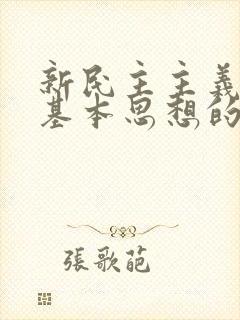 新民主主義
基本思想的
張歌葩